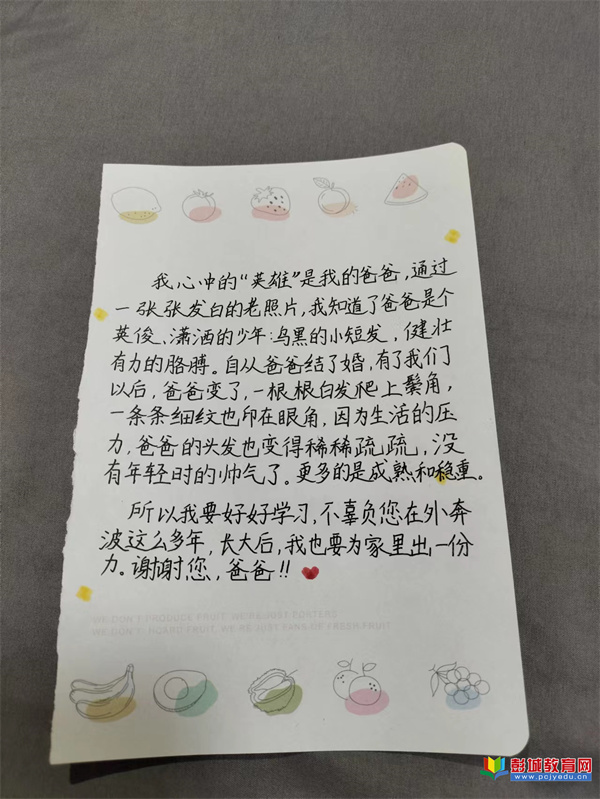 我心中的“英雄”是我的爸爸，通过
一张张发白的老照片，我知道了爸爸是个
英俊、潇洒的少年：乌黑的小短发，健壮
有力的胳膊。自从爸爸结了婚，有了我们
以后，爸爸变了，一根根白发爬上鬓角，
一条条细纹也印在眼角，因为生活的压
力，爸爸的头发也变得稀稀疏疏，没
有年轻时的帅气了。更多的是成熟和稳重。
所以我要好好学习，不辜负您在外奔
波这么多年，长大后，我也要为家里出一份
力。谢谢您，爸爸!!
WE DON'T PRODUCE FRUIT, WE'RE JUST PORTERS
WE DON'T HOARD FRUIT, WE'RE JUST FANS OF FRESH FRUIT
彭城教育网
www.pcjyedu.cn